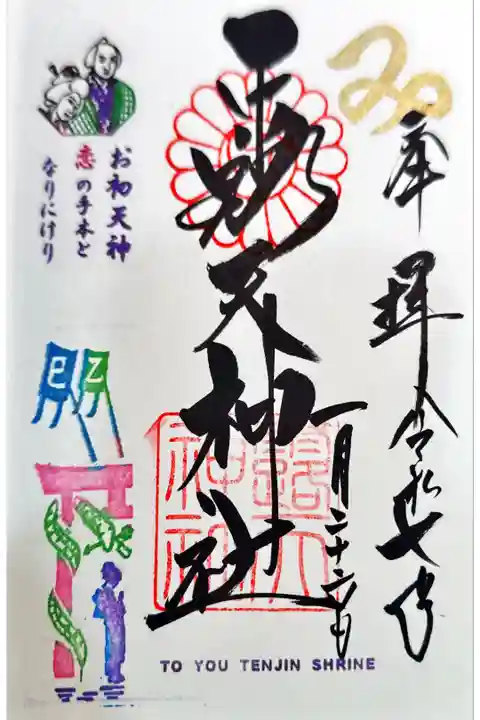 奉拝 令和七年
一月二十六日
露天神社
露天神社
お初天神
恋の手本と
なりにけり
TO YOU TENJIN SHRINE